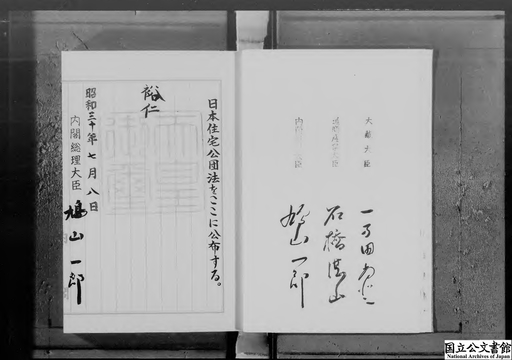 日本住宅公団法をここに公布する。
裕仁
天皇御璽
昭和三十年七月八日
内閣総理大臣 鳩山一郎
大蔵大臣 一万田尚登
石橋湛山
内閣総理大臣 鳩山一郎
国立公文書館
National Archives of Japan